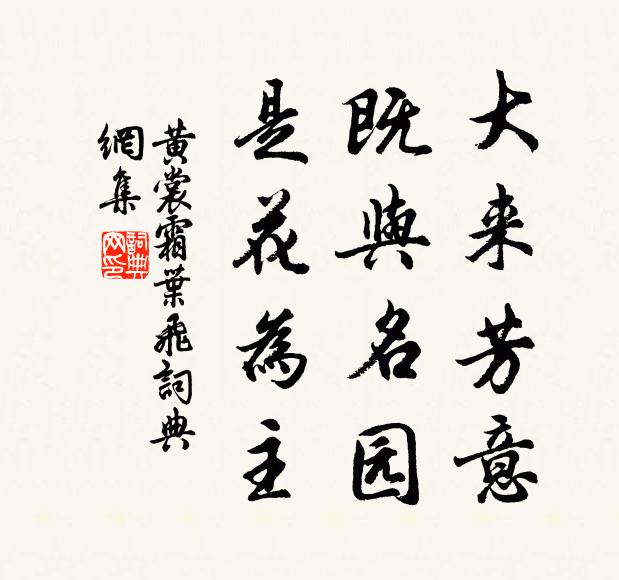 大来芳意
既與名园
是花為主
黄裳霜葉飛詞典
網集
詞典
网印